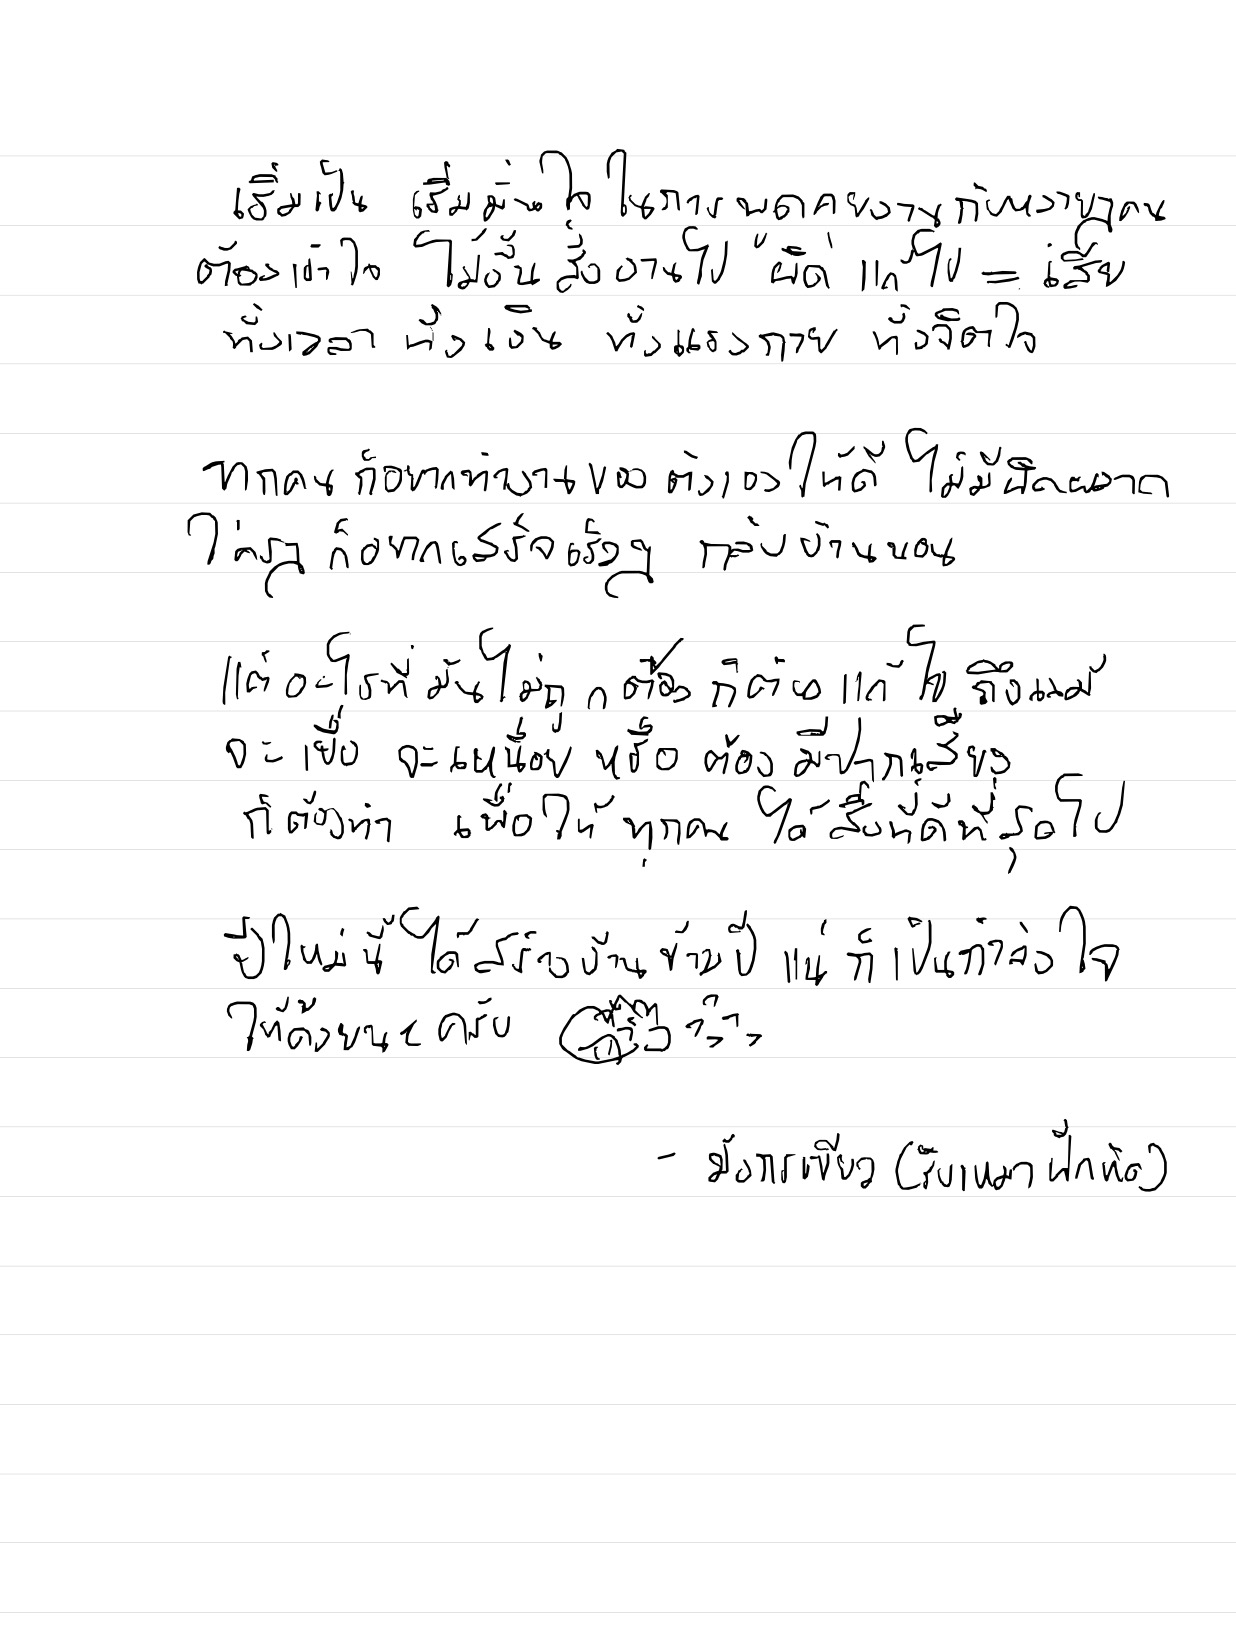 เริ่มเป็น เริ่มมั่นใจ ในการพูดคุยงานกับหลายๆคน
ต้องเข้าใจ ไม่งั้นสั่งงานไป "ผิด" แก้ไป = เสีย
ทั้งเวลา ทั้งเงิน ทั้งแรงกาย ทั้งจิตใจ
ทุกคนก็อยากทำงานของตัวเองให้ดี ไม่มีผิดพลาด
ใครๆ ก็อยากเสร็จเร็วๆ กลับบ้านนอน
แต่อะไรที่มันไม่ถูกต้อง ก็ต้องแก้ไข ถึงแม้
จะเบื่อ จะเหนื่อย หรือต้องมีปากเสียง
ก็ต้องทำ เพื่อให้ทุกคนได้สิ่งที่ดีที่สุดไป
ปีใหม่นี้ ได้สร้างบ้านข้ามปีแน่ ก็เป็นกำลังใจ
ให้ด้วยนะครับ
- มังกรเขียว (รับเหมาฝึกหัด)